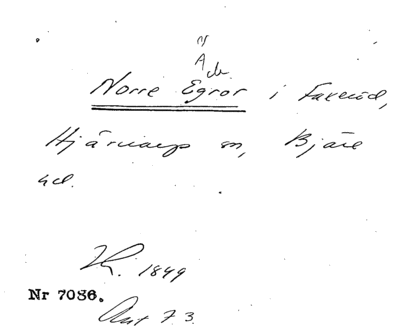 Norre Egror i Faxeröd,
Hjärnarps sn, Bjäre
hd.
1849
Nr 7086.
Avt 73